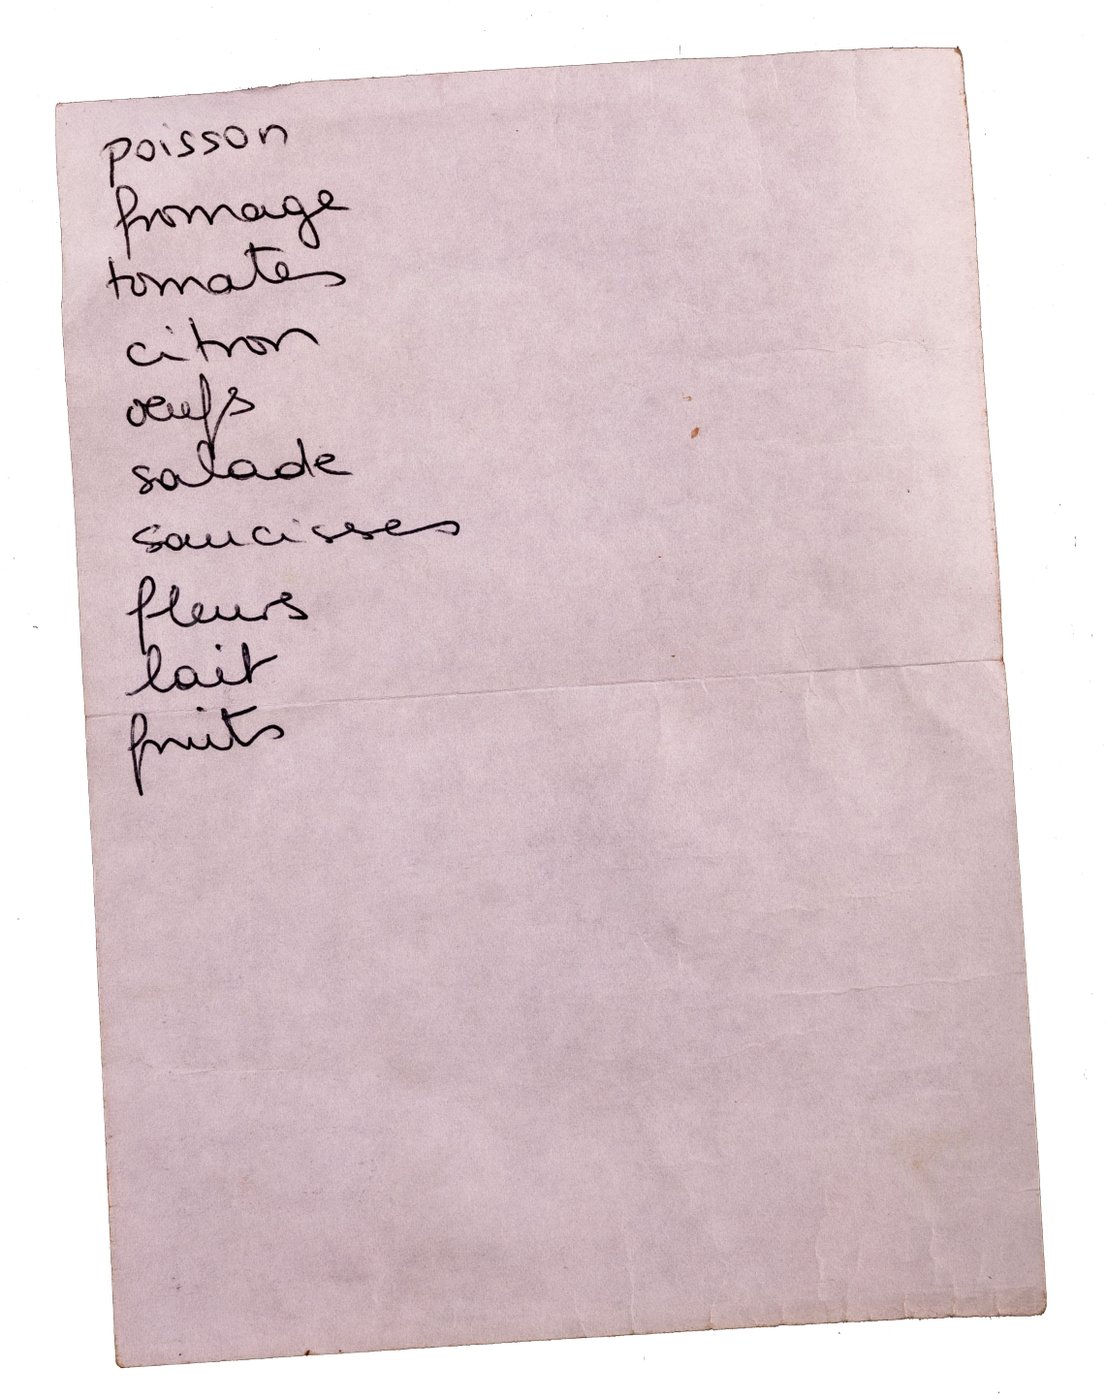 poisson
fromage
tomates
citron
œufs
salade
saucisses
fleurs
lait
fruits